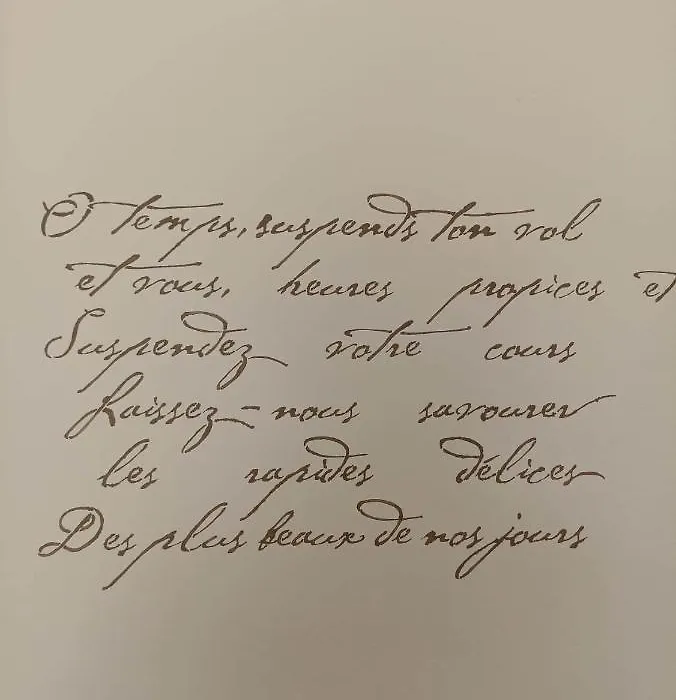 O temps, suspends ton vol
et vous, heures propices et
Suspendez votre cours
Laissez-nous savourer
les rapides délices
Des plus beaux de nos jours